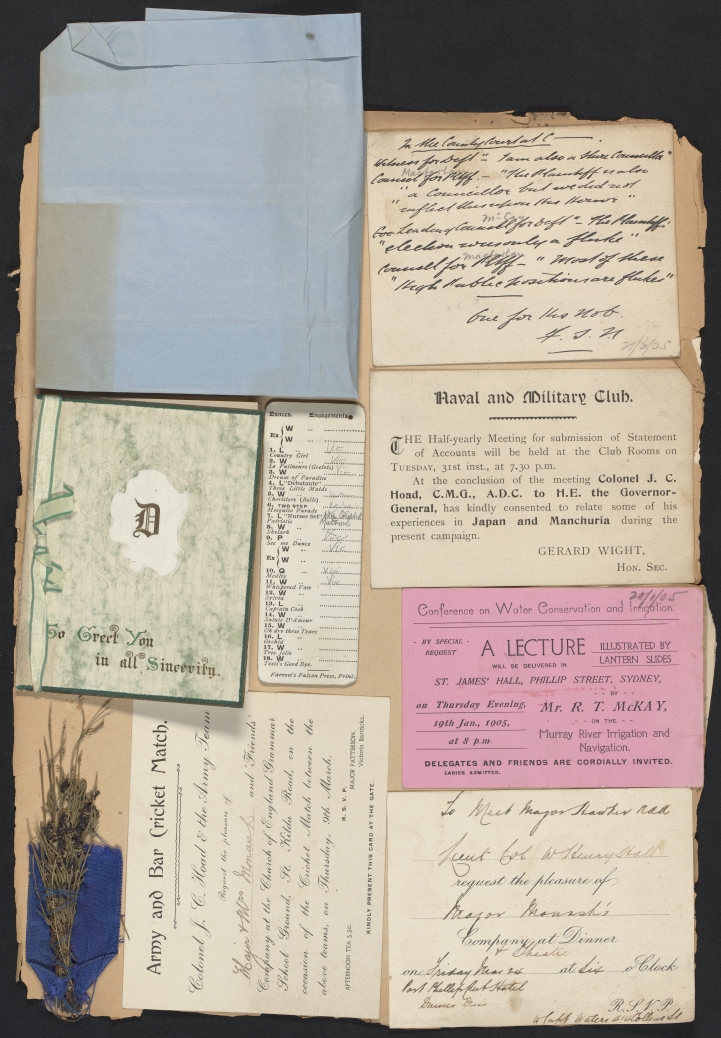 In the County Court at C
Witness for Deft "I am also a Shire Councillor"
Counsel for Plff. - "The Plaintiff is also
Mackinlay
"a Councillor but we did not
"inflict this upon His Honor"
McCay
Leading Counsel for Deft - The Plaintiff's
"election was only a fluke"
Mackinlay
Counsel for Plff - "Most of these
"High Public positions are flukes"
One for his nob.
21/2/05
Naval and Military Club.
THE Half-yearly Meeting for submission of Statement
of Accounts will be held at the Club Rooms on
TUESDAY, 31st inst., at 7.30 p.m.
At the conclusion of the meeting Colonel J. C.
Hoad, C.M.G., A.D.C. to H.E. the Governor-
General, has kindly consented to relate some of his
experiences in Japan and Manchuria during the
present campaign.
GERARD WIGHT,
HON. SEC.
D
To Greet You
in all Sincerity.
Dances. Engagements.
W
Ex
W
1. L
Country Girl
2. W
La Patineurs (Grelots)
3. W
Dream of Paradise
4. L "Debutante"
Three Little Maids
5. W
Choristers (Bells)
6. TWO STEP
Mosquito Parade
7. L "Nurses Set"
Patriotic
8. W
Skylark
9. P
See me Dance
W
Ex
W
10. Q
Medley
11. W
Whispered Vow
12. W
Sylvia
13. L
Captain Cook
14. W
Sainte D'Amour
15. W
Oh dry those Tears
16. L
Orchid
17. W
Tres Jolie
18. W
Tosti's Good Bye.
Farrow's Falcon Press, Print.
20/1/05
Conference on Water Conservation and Irrigation.
- BY SPECIAL -
REQUEST
A LECTURE
ILLUSTRATED BY
LANTERN SLIDES
WILL BE DELIVERED IN
ST. JAMES' HALL, PHILLIP STREET, SYDNEY,
on Thursday Evening,
19th Jan., 1905,
at 8 p.m.
- BY -
Mr. R. T. McKAY,
- ON THE -
Murray River Irrigation and
Navigation.
DELEGATES AND FRIENDS ARE CORDIALLY INVITED.
LADIES ADMITTED.
Army and Bar Cricket Match.
Colonel J. C. Hoad & the Army Team
Request the pleasure of
Major & Mrs Monash and Friends'
Company at the Church of England Grammar
School Ground, St. Kilda Road, on the
occasion of the Cricket Match between the
above teams, on Thursday, 9th March.
R. S. V. P.
MAJOR PATTERSON,
Victoria Barracks.
AFTERNOON TEA 3.30.
KINDLY PRESENT THIS CARD AT THE GATE.
To Meet Major Hawker RAA
Lieut Col W Henry Hall
request the pleasure of
Major Monash's
Company at Dinner
& Theatre
on Friday Mar 24 at Six o'Clock
Port Phillip Club Hotel
Dinner Dress
R.S.V.P.
to Capt Waters 414 Collins St